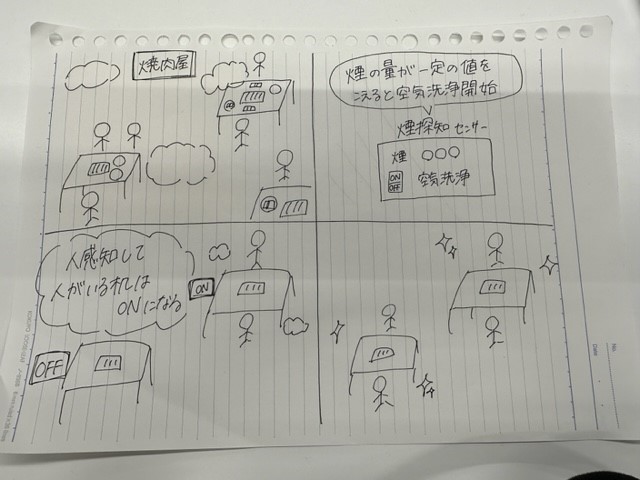 焼肉屋
煙の量が一定の値を
こえると空気洗浄開始
煙探知センサー
煙 ○○○
ON
OFF
空気洗浄
人感知して
人がいる机は
ONになる
ON
OFF
No.
Date